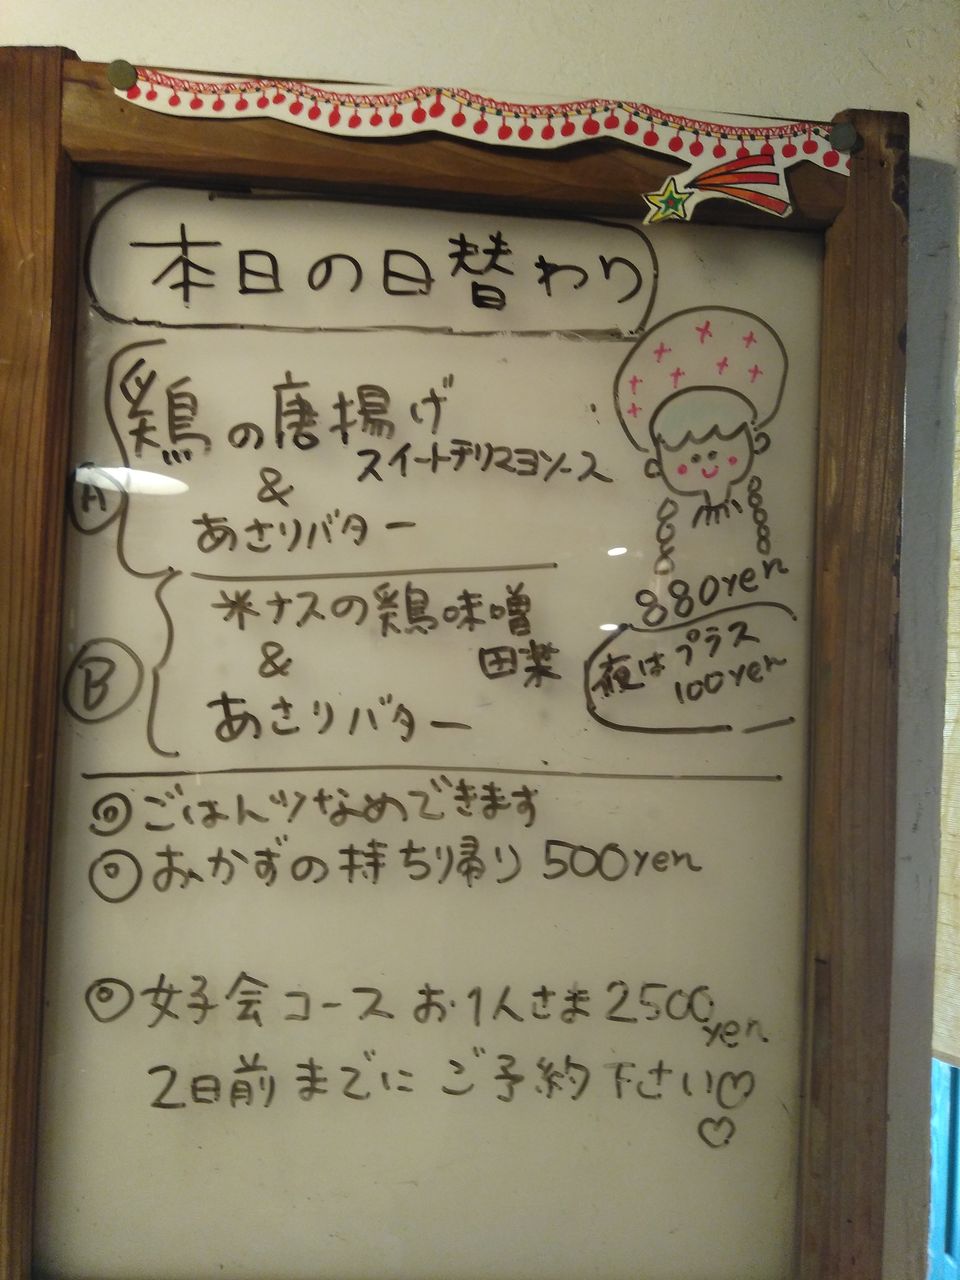 本日の日替わり
A
鶏の唐揚げ
スイートテリマヨソース
&
あさりバター
880yen
夜はプラス
100yen
B
米ナスの鶏味噌
田楽
&
あさりバター
◎ごはん少なめできます
◎おかずの持ち帰り 500yen
◎女子会コース お1人さま2500yen
2日前までに ご予約下さい♡
♡